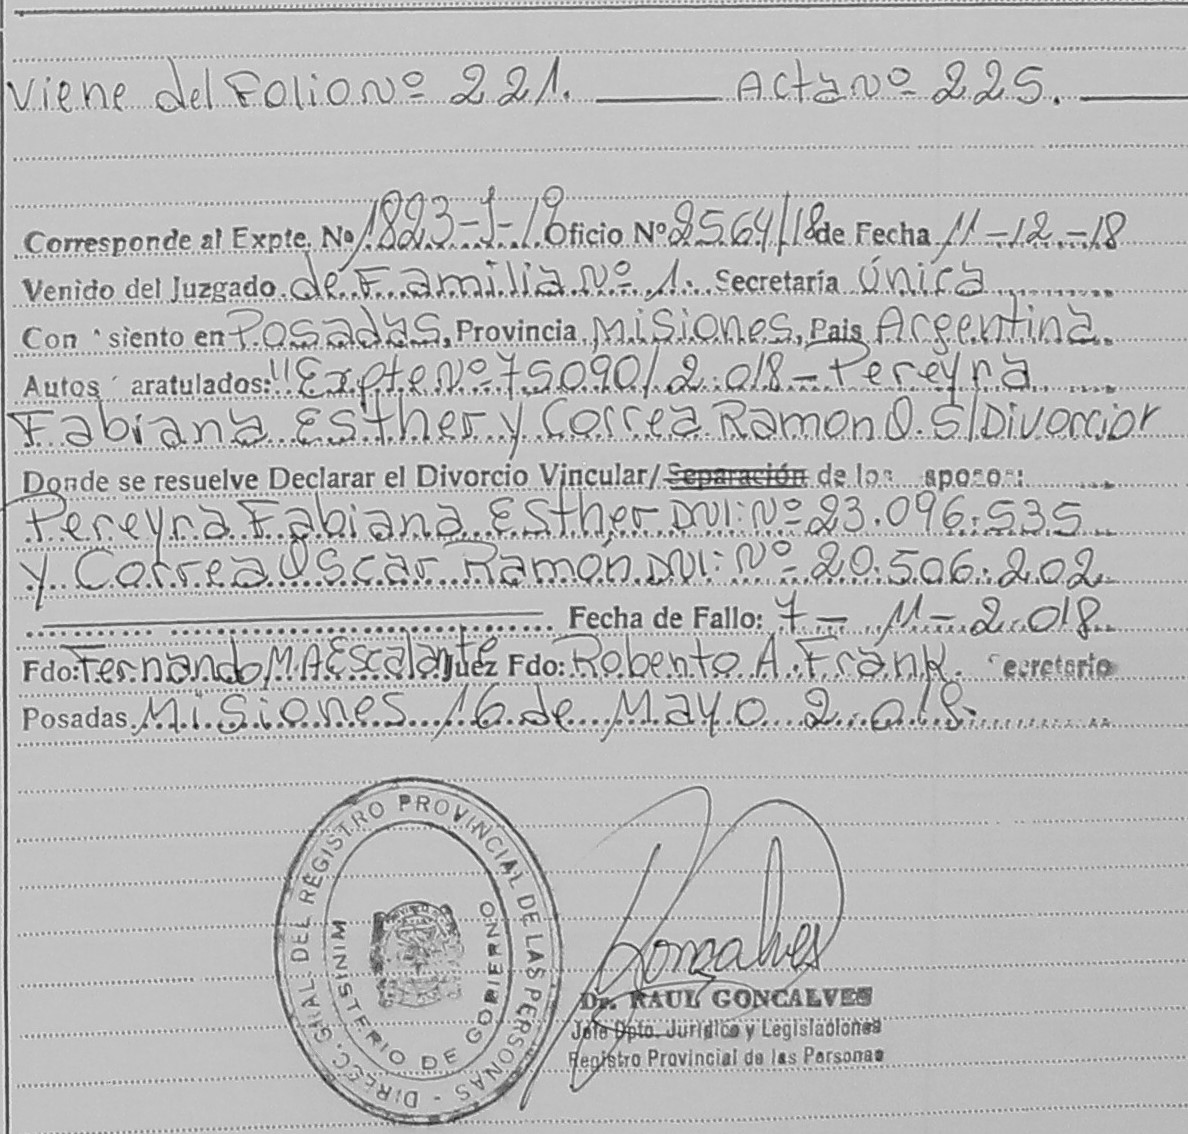 Viene del Folio Nº 221. Acta Nº 225.
Corresponde al Expte. Nº 1823-J-19 Oficio Nº 2564/18 de Fecha 11-12-18
Venido del Juzgado de Familia Nº 1. Secretaría Única
Con siento en Posadas, Provincia Misiones, País Argentina.
Autos aratulados: "Expte Nº 75090/2.018 - Pereyra
Fabiana Esther y Correa Ramon O. S/Divorcior
Donde se resuelve Declarar el Divorcio Vincular/Separación de los sposos:
Pereyra Fabiana Esther DNI: Nº 23.096.535
y Correa Oscar Ramón DNI: Nº 20.506.202
Fecha de Fallo: 7 - 11 - 2.018.
Fdo: Fernando M.A Escalante Juez Fdo: Roberto A. Frank. Secretario
Posadas Misiones 16 de Mayo 2.018.
DIREC. GRAL. DEL REGISTRO PROVINCIAL DE LAS PERSONAS -
MINISTERIO DE GOBIERNO
Goncalves
Dr. RAUL GONCALVES
Jefe Dpto. Jurídico y Legislaciones
Registro Provincial de las Personas